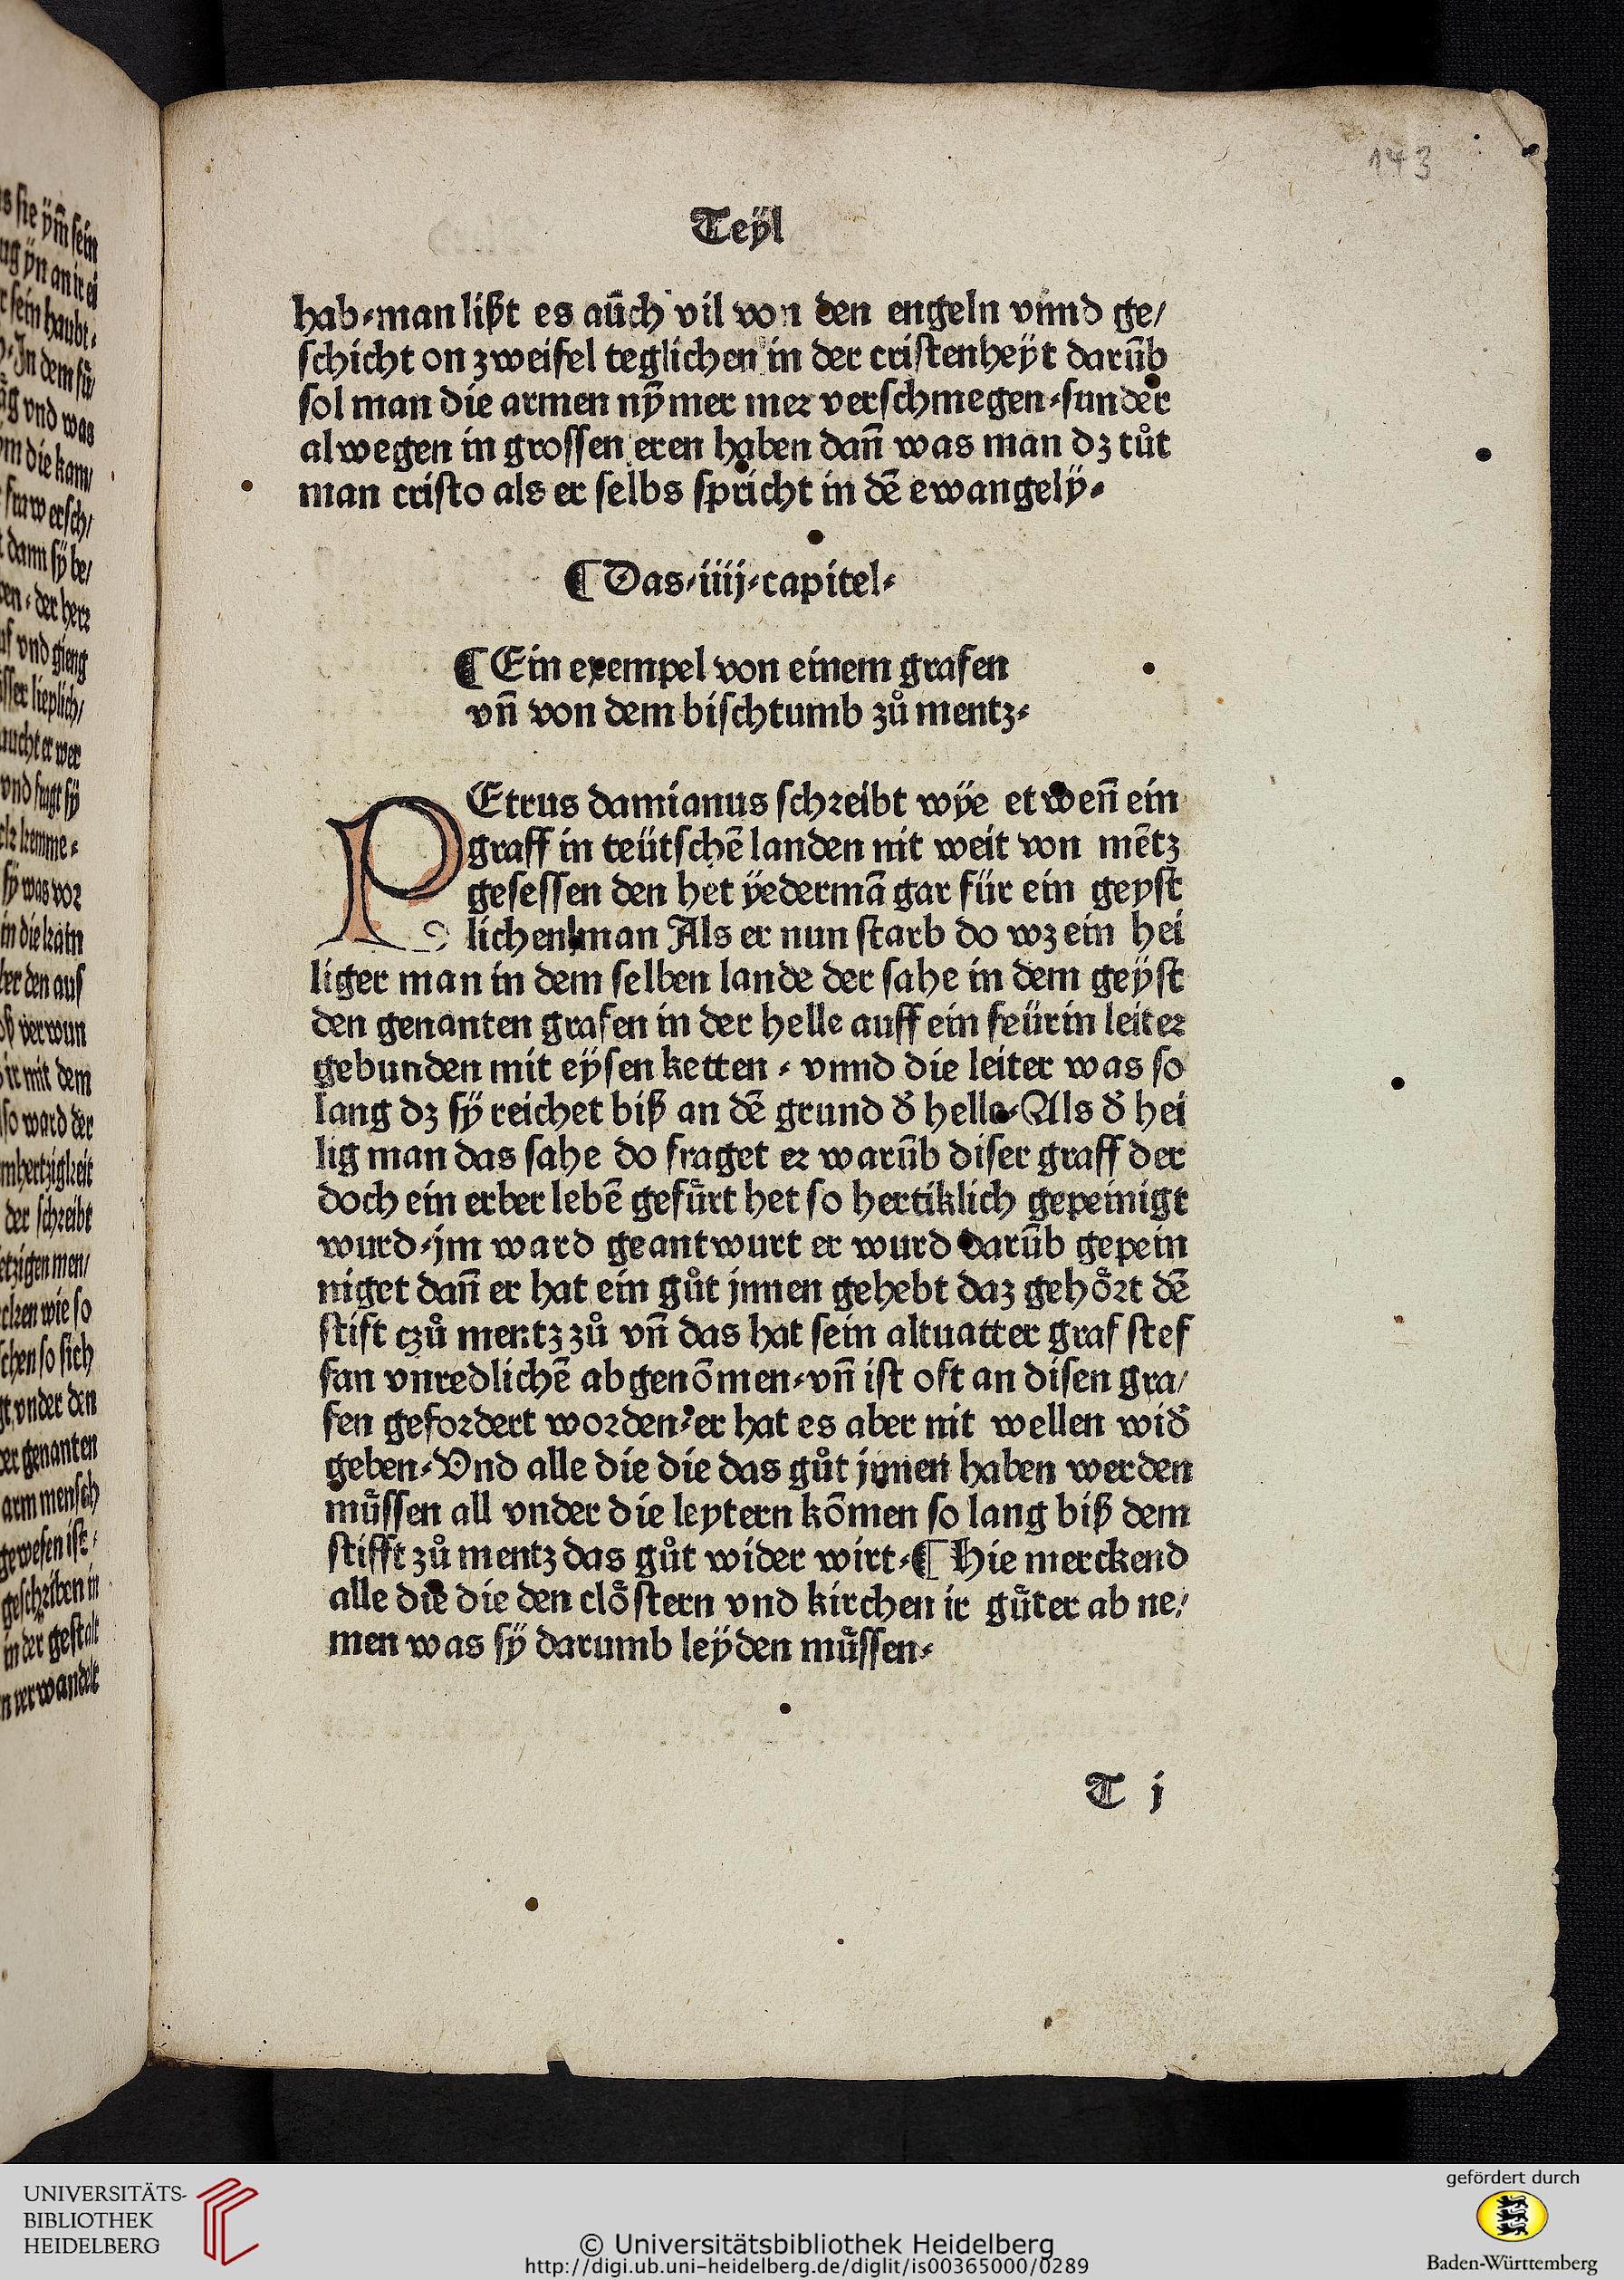 143
Teÿl
hab⸗man lißt es aūch vil von den engeln vnnd ge/
schicht on zweifel teglichen in der cristenheÿt darūb
sol man die armen nȳmer mer verschmegen⸗sunder
alwegen in grossen eren haben dañ was man dz tůt
man cristo als er selbs spricht in dē ewangelÿ⸗
¶ Das⸗iiij⸗capitel⸗
¶ Ein exempel von einem grafen
vñ von dem bischtumb zů mentz⸗
PEtrus damianus schreibt wÿe etweñ ein
graff in teütschē landen nit weit von mētz
gesessen den het ÿedermā gar für ein geyst
lichen man Als er nun starb do wz ein hei
liger man in dem selben lande der sahe in dem geÿst
den genanten grafen in der helle auff ein feürin leiter
gebunden mit eÿsen ketten ⸗ vnnd die leiter was so
lang dz sÿ reichet biß an dē grund đ helle⸗Als đ hei
lig man das sahe do fraget er warūb diser graff der
doch ein erber lebē gefůrt het so hertiklich gepeinigt
wurd⸗jm ward geantwurt er wurd darūb gepein
niget dañ er hat ein gůt jnnen gehebt daz gehoͤrt dē
stift czů mentz zů vñ das hat sein altuatter graf stef
fan vnredlichē abgenōmen⸗vñ ist oft an disen gra/
fen gefordert worden⸗er hat es aber nit wellen wiđ
geben⸗Vnd alle die die das gůt jnnen haben werden
muͤssen all vnder die leytern kōmen so lang biß dem
stifft zů mentz das gůt wider wirt⸗¶ Hie merckend
alle die die den cloͤstern vnd kirchen ir guͤter ab ne/
men was sÿ darumb leÿden muͤssen⸗
T j
UNIVERSITÄTS-
BIBLIOTHEK
HEIDELBERG
© Universitätsbibliothek Heidelberg
http://digi.ub.uni-heidelberg.de/diglit/is00365000/0289
gefördert durch
Baden-Württemberg